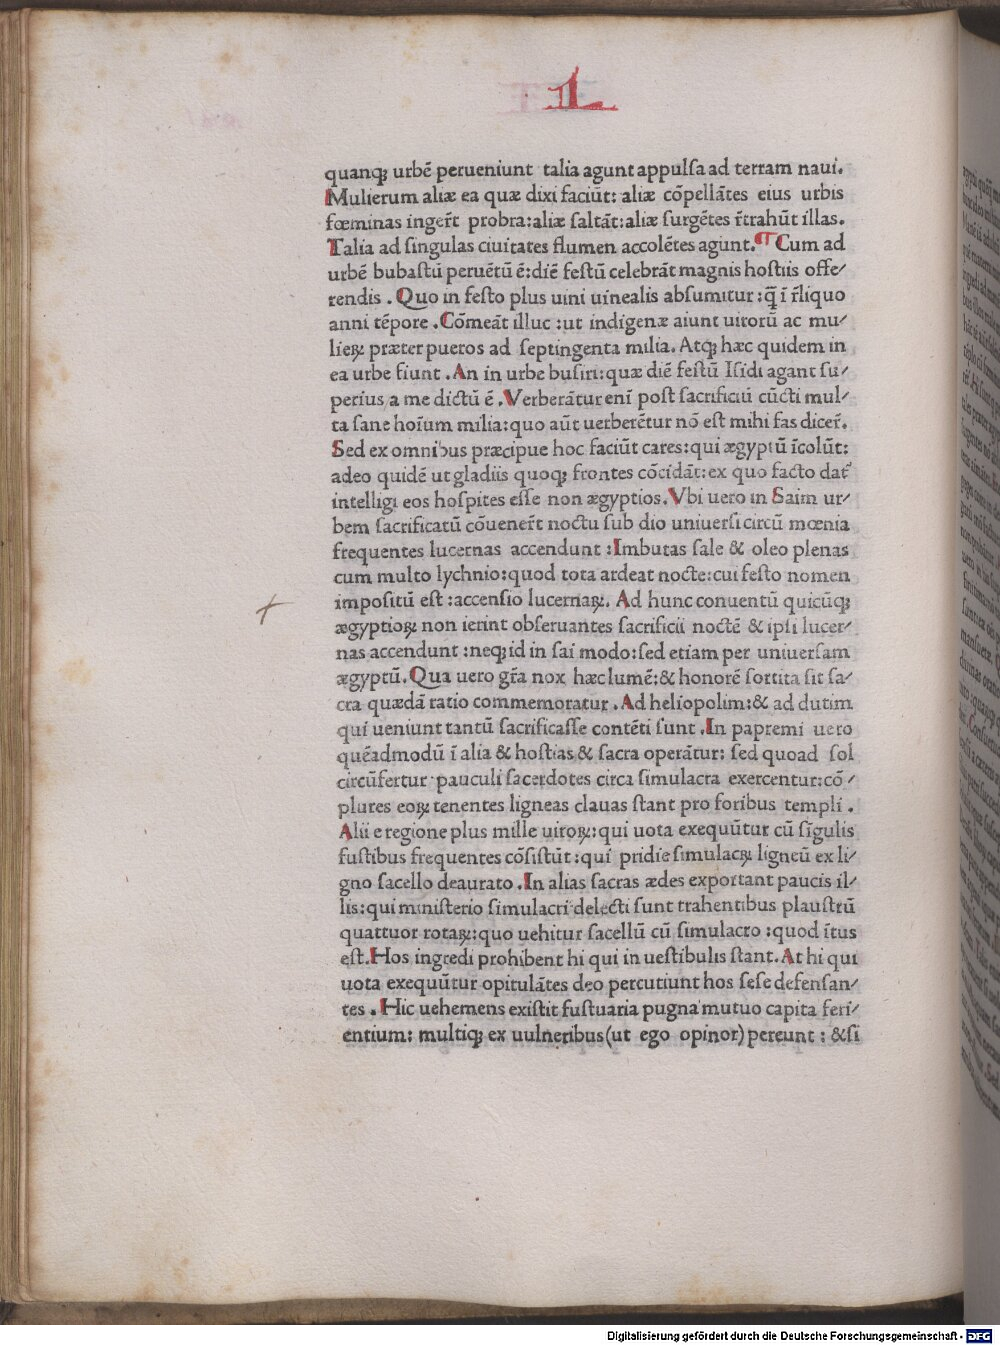 L
quanqꝫ urbē perueniunt talia agunt appulsa ad terram naui.
Mulierum aliæ ea quæ dixi faciūt: aliæ cōpellātes eius urbis
fœminas inger̄t probra: aliæ saltāt: aliæ surgētes r̄trahūt illas.
Talia ad singulas ciuitates flumen accolētes agunt. ¶ Cum ad
urbē bubastū peruētū ē: diē festū celebrāt magnis hostiis offe/
rendis. Quo in festo plus uini uinealis absumitur: q̄ ī r̄liquo
anni tēpore. Cōmeāt illuc: ut indigenæ aiunt uirorū ac mu/
lieꝝ præter pueros ad septingenta milia. Atqꝫ hæc quidem in
ea urbe fiunt. An in urbe busiri: quæ diē festū Isidi agant su/
perius a me dictū ē. Verberātur enī post sacrificiū cūcti mul/
ta sane hoīum milia: quo aūt uerberētur nō est mihi fas dicer̄.
Sed ex omnibus præcipue hoc faciūt cares: qui ægyptū īcolūt:
adeo quidē ut gladiis quoqꝫ frontes cōcidāt: ex quo facto dat᷑
intelligi eos hospites esse non ægyptios. Vbi uero in Saim ur/
bem sacrificatū cōuener̄t noctu sub dio uniuersi circū mœnia
frequentes lucernas accendunt: Imbutas sale & oleo plenas
cum multo lychnio: quod tota ardeat nocte: cui festo nomen
impositū est: accensio lucernaꝝ. Ad hunc conuentū quicūqꝫ
ægyptioꝝ non ierint obseruantes sacrificii noctē & ipsi lucer/
nas accendunt: neqꝫ id in sai modo: sed etiam per uniuersam
ægyptū. Qua uero gr̄a nox hæc lumē: & honorē sortita sit sa/
cra quædā ratio commemoratur. Ad heliopolim: & ad dutim
qui ueniunt tantū sacrificasse contēti sunt. In papremi uero
quēadmodū ī alia & hostias & sacra operātur: sed quoad sol
circūfertur pauculi sacerdotes circa simulacra exercentur: cō/
plures eoꝝ tenentes ligneas clauas stant pro foribus templi.
Alii e regione plus mille uiroꝝ: qui uota exequūtur cū sīgulis
fustibus frequentes cōsistūt: qui pridie simulacꝝ ligneū ex li/
gno sacello deaurato. In alias sacras ædes exportant paucis il/
lis: qui ministerio simulacri delecti sunt trahentibus plaustrū
quattuor rotaꝝ: quo uehitur sacellū cū simulacro: quod ītus
est. Hos ingredi prohibent hi qui in uestibulis stant. At hi qui
uota exequūtur opitulātes deo percutiunt hos sese defensan/
tes. Hic uehemens existit fustuaria pugna mutuo capita feri/
entium: multiqꝫ ex uulneribus (ut ego opinor) pereunt: & si
Digitalisierung gefördert durch die Deutsche Forschungsgemeinschaft - DFG